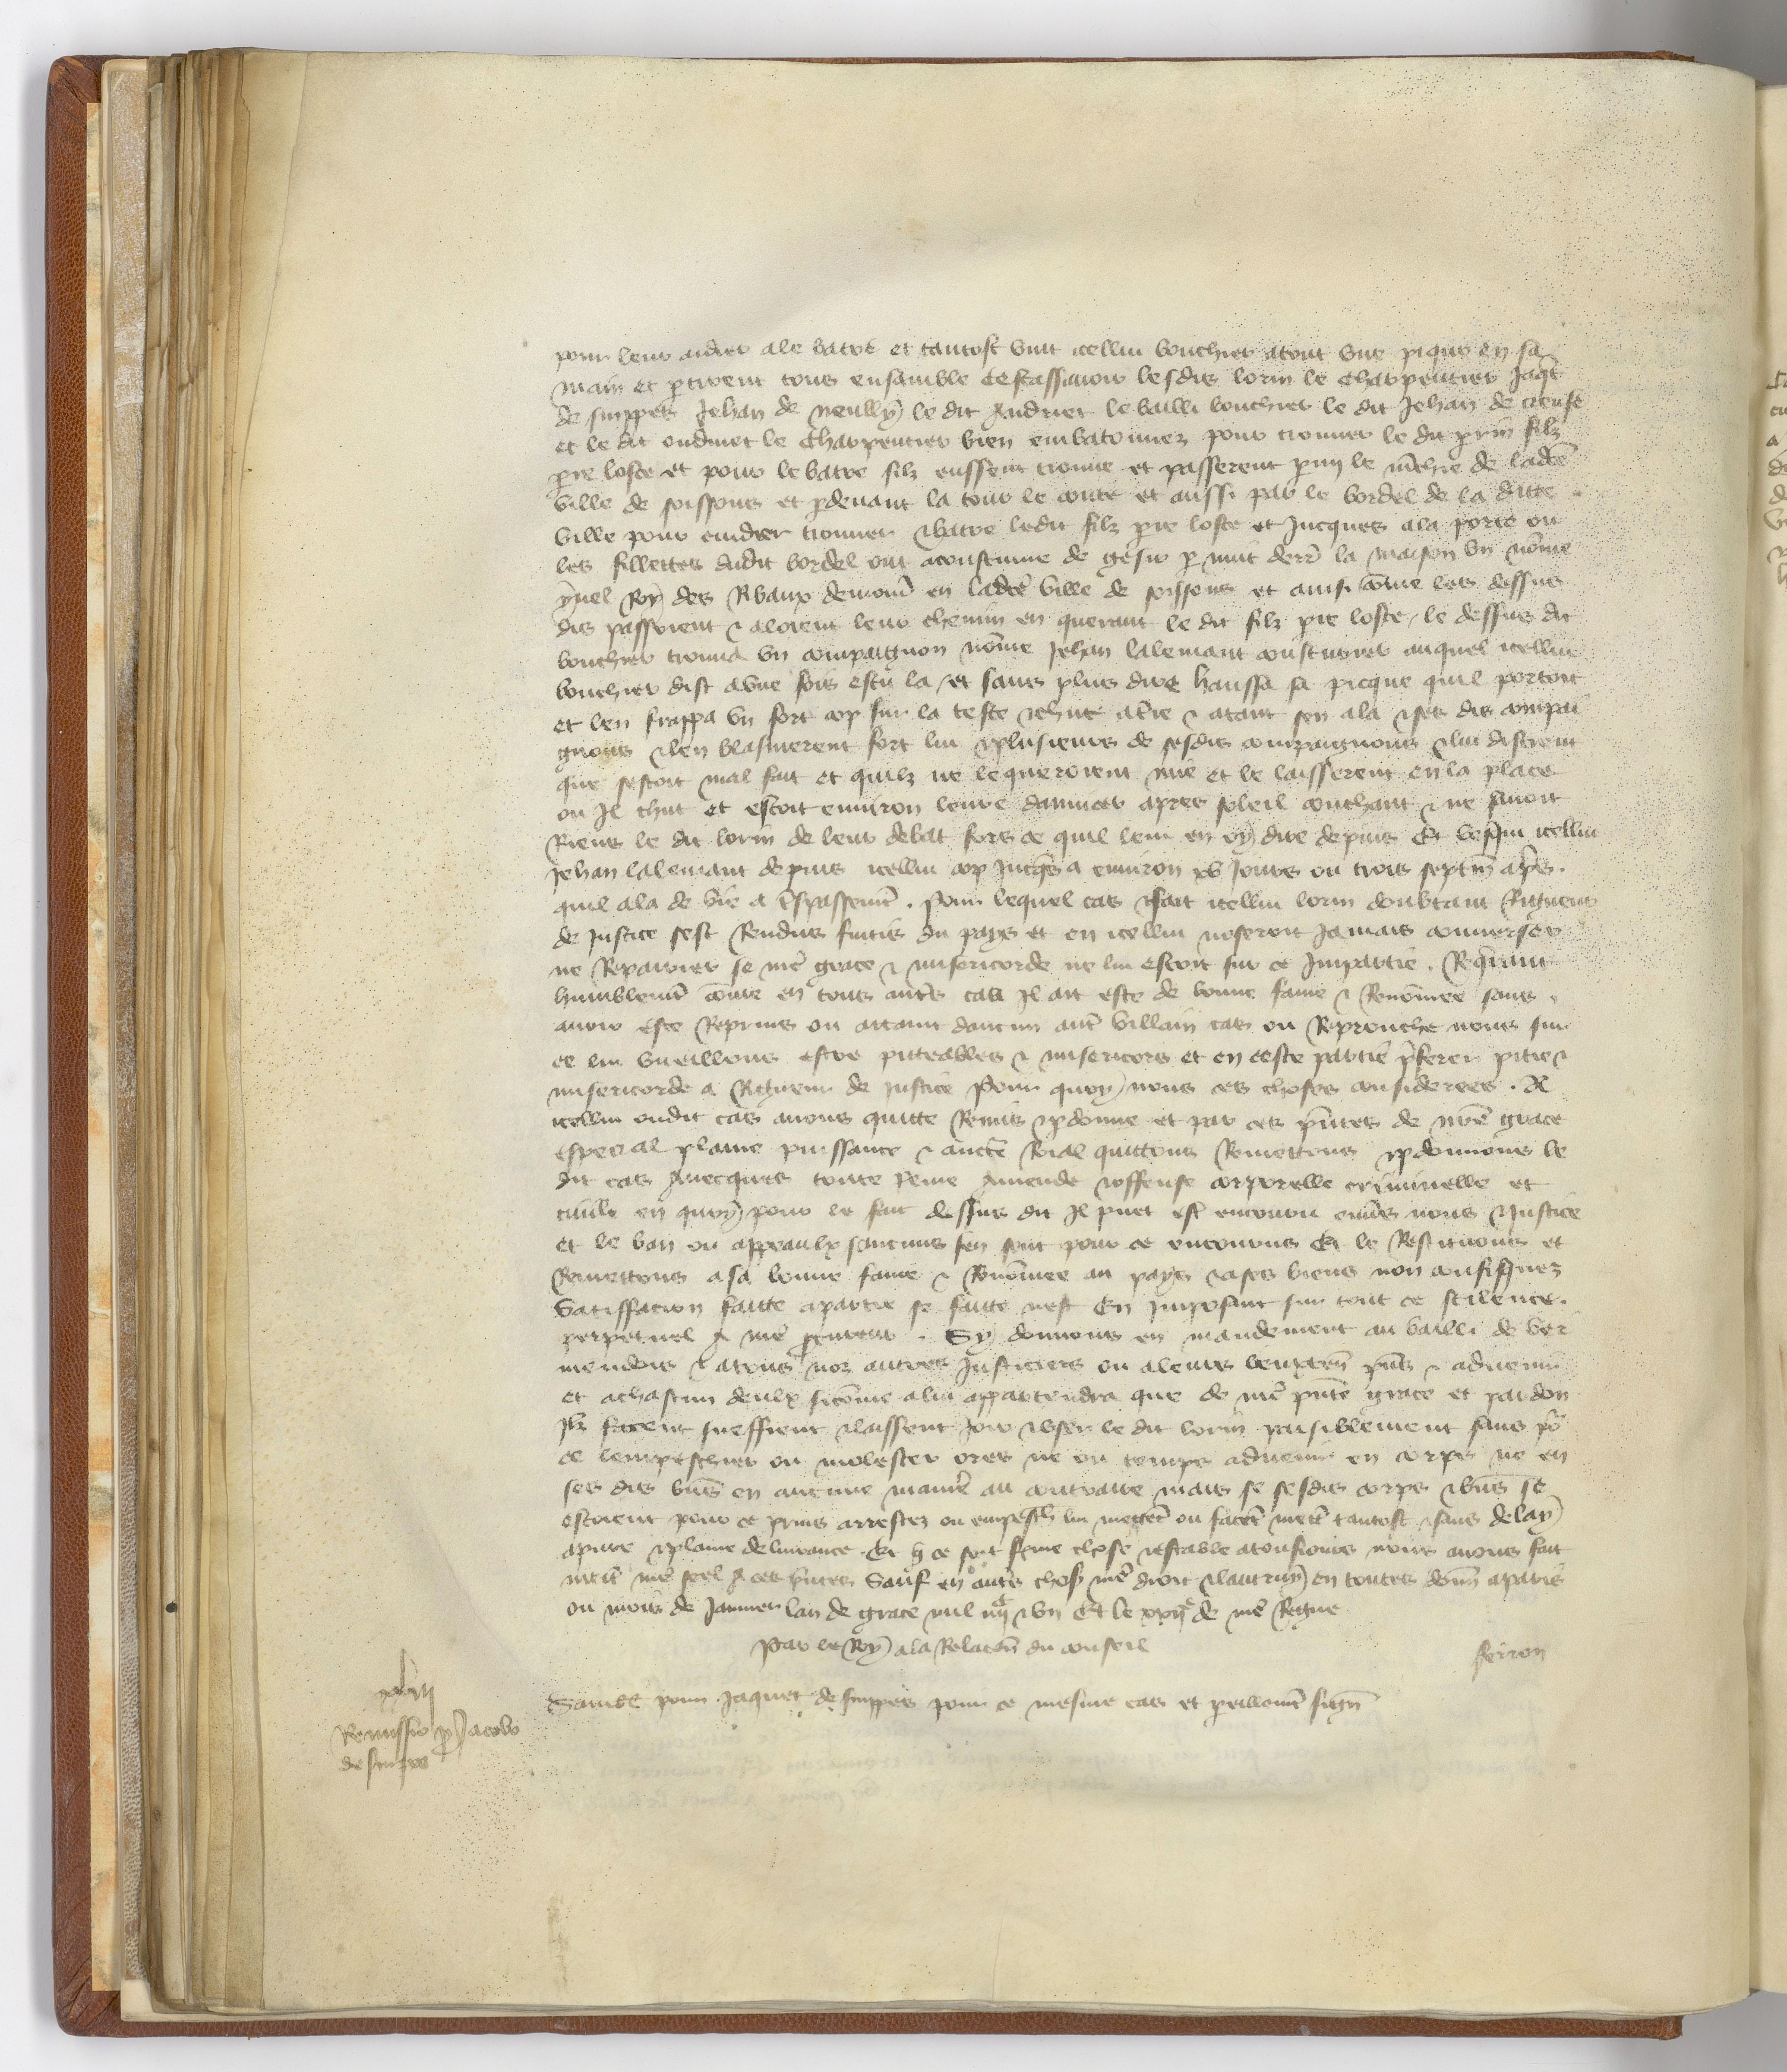 pour leur aidier a le batre et tantost vint icellui bouchier atout une pique en sa
main et ptirent tous ensamble cestassavoir lesdis lorin le charpentier Jaqt
de suippes Jehan de neully le dit Andriet le bailli bouchier le dit Jehan de
et le dit oudinet le Charpentier bien embatonnez pour trouver le dit filz
pre loste et pour le batre silz eussent trouve et passerent pmy le mchie de ladce
ville de soissons et pdevant la tour le conte et aussi par le bordel de la ditte
ville pour cuidier trouver & batre ledit filz pre loste et Jucques a la porte ou
les fillettes dudit bordel ont acoustume de gesir p nuit derr la maison un nome
ynel Roy des Ribaux demour en ladce ville de soissons et ainsi come les dessus
dis passoient & aloient leur chemin en querant le dit filz pre loste / le dessus dit
bouchier trouva un compaignon nome Jehan lalemant cousturier auquel icellui
bouchier dist a une fois estu la / et sans plus dire haussa sa picque quil portoit
et len frappa un fort cop sur la teste & chut a tre & atant sen ala & ses dis compai
gnons & len blasmerent fort lui & plusieurs de sesdis compaignons & lui disrent
que sestoit mal fait et quilz ne le queroient mie et le laisserent en la place
ou Il chut et estoit environ leure dannuit apres soleil couchant & ne savoit
Riens le dit lorin de leur debat fors ce quil leur en oy dire depuis Et vesqui icellui
Jehan lalemant depuis icellui cop Jucqs a environ xv Jours ou trois sepm aps
quil ala de vie a tspassemt . Pour lequel cas & fait icellui lorin doubtant Rigueur
de Justice sest Rendus fuitis du pays et en icellui noseroit Jamais converser
ne Repairier se nre grace & misericorde ne lui estoit sur ce Impartie . Requant
humblemt come en tous autrs cas Il ait este de bonne fame & Renomee sans
avoir este Reprins ou attaint daucun aut villain cas ou Reprouche nous sur
ce lui vueillons estre piteables & misericors et en ceste partie pferer pitie &
misericorde a Rigueur de justice Pour quoy nous ces choses considerees . A
icellui oudit cas avons quitte Remis & pdonne et par ces pntes de nre grace
especial plaine puissance & aucte Roial quittons Remettons & pdonnons le
dit cas Avecques toute Peine Amende & offense corporelle criminelle et
civile en quoy pour le fait dessus dit Il puet est encouru envs nous & Justice
et le ban ou appeaulx saucuns sen sont pour ce encourus Et le Restituons et
Remettons a sa bonne fame & Renomee au pays & a ses biens non confisquez
Satisfacion faitte a partie se faitte nest En Imposant sur tout ce scilence
perpetuel A nre pcureur . Sy donnons en mandement au bailli de ver
mendois & a tous noz autres Justiciers ou a leurs lieuxten pns & advenir
et a chascun deulx sicome a lui appartendra que de nre pnte grace et pardon
Ilz facent sueffrent & laissent Joir & user le dit lorin paisiblement sans po
ce lempeschier ou molester ores ne ou temps advenir en corps ne en
ses dis bns en aucune manre au contraire mais se sesdis corps & bns se
estoient pour ce prins arrestez ou empesch lui mettet ou facet mett tantost & sans delay
a pure & plaine delivrance . Et q ce soit ferme chose & estable a tousiours nous avons fait
mett nre seel A ces pntes Sauf en autrs chos nre droit & lautruy en toutes donn a paris
ou mois de Janvier lan de grace mil iiijc & un Et le xxije de nre Regne
Par le Roy a la Relacion du conseil
ferron
xlvij
Remissio p Jacobo
de suippes
Samble pour Jaquet de suippes pour ce mesme cas et pareillemt sign